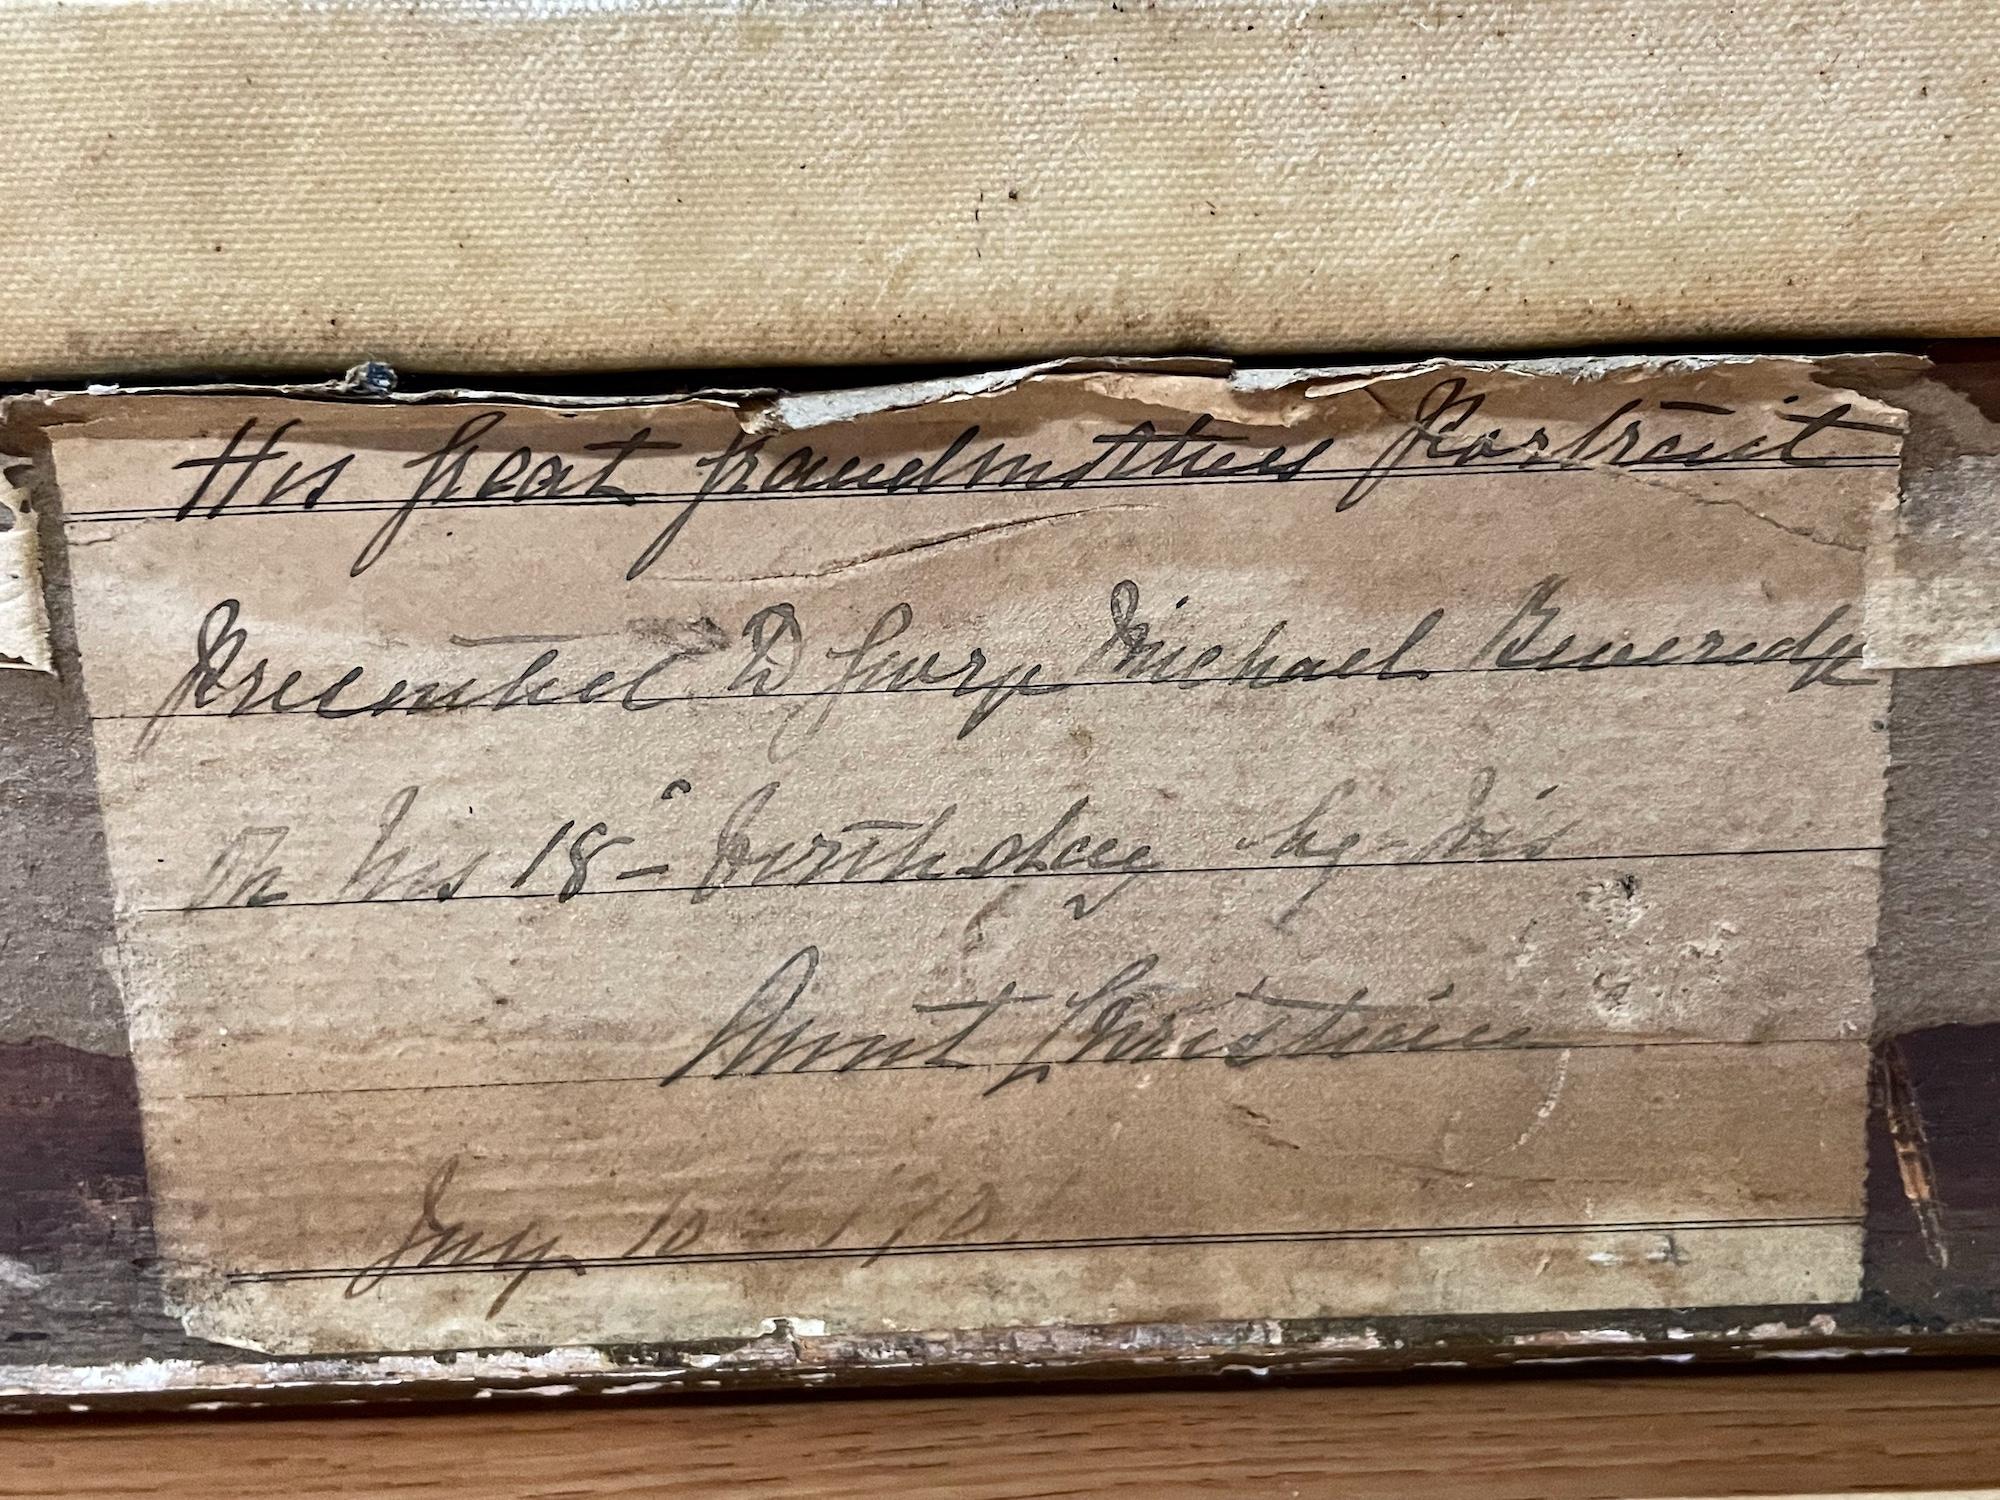 His Great Grandmothers Portrait
Presented To George Michael Beveridge
On his 18- birthday by his
Aunt Christian
July 10- 190